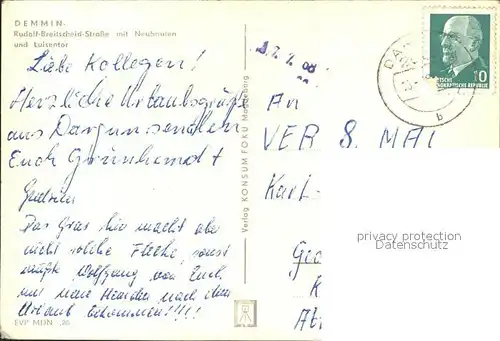 DEMMIN-
Rudolf-Breitscheid-Straße mit Neubauten
und Luisentor
Liebe Kollegen!
Herzliche Urlaubsgrüße
aus Dargun senden
Euch
Das Gras hier macht aber
nicht solche Flecke, sonst
müßte Wolfgang von Euch
nur neue Hemden nach dem
Urlaub bekommen!!!!
EVP MDN -,20
Verlag KONSUM FOKU Magdeburg
An
VER S. MAI
Karl-
Geo
K
Ab
DAR
b
10
DEUTSCHE
DEMOKRATISCHE REPUBLIK
privacy protection
Datenschutz